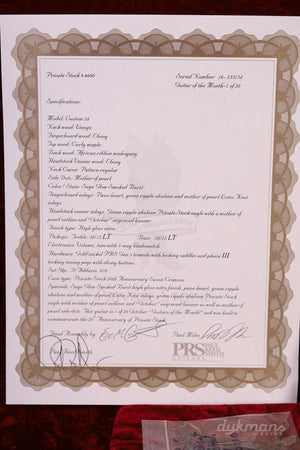 Private Stock # 4600
Serial Number: 14-213134
Guitar of the Month-1 of 20
Specifications:
Model: Custom 24
Neck wood: Wenge
Fingerboard wood: Ebony
Top wood: Curly maple
Back wood: African ribbon mahogany
Headstock Veneer wood: Ebony
Neck Carve: Pattern regular
Side Dots: Mother of pearl
Color / Stain: Sage Glow Smoked Burst
Fingerboard inlays: Paua heart, green ripple abalone and mother of pearl Extra Kuist
inlays
Headstock veneer inlay: Green ripple abalone Private Stock eagle with a mother of
pearl outline and "October" engraved banner
Finish type: High gloss nitro
Pickups: Treble: 58/15 LT Bass: 58/15 LT
Electronics: Volume, tone with 5-way bladeswitch
Hardware: Gold/nickel PRS Gen 3 tremolo with locking saddles and phase III
locking tuning pegs with ebony buttons
Set-Up: D'Addario .010
Case type: Private Stock 20th Anniversary Saxon Crimson
Specials: Sage Glow Smoked Burst high gloss nitro finish, paua heart, green ripple
abalone and mother of pearl inlays, green ripple abalone Private Stock
eagle with mother of pearl outlines and "October" engraved banner as well as mother of
pearl side dots. This guitar is 1 of 20 October "Guitars of the Month" and was built to
commemorate the 20th Anniversary of Private Stock.
Final Assembly by
Paul Miles
Paul Reed Smith
PRS PAUL REED SMITH
GUITARS
dykmans